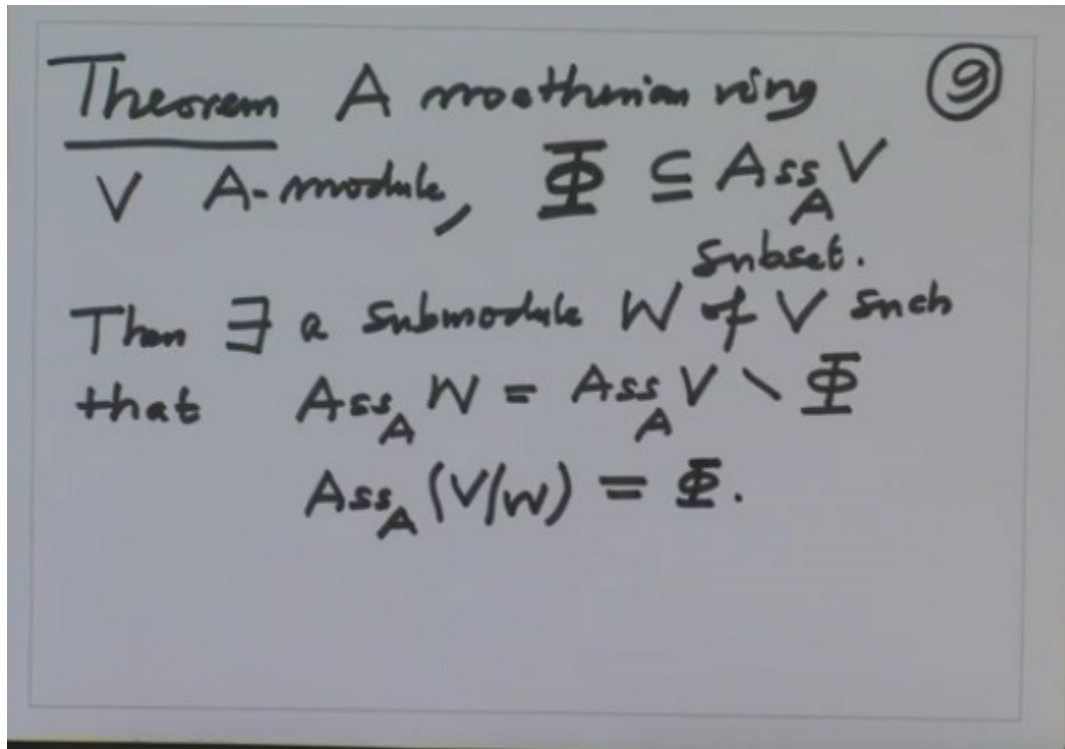 Theorem A noetherian ring ⑨
V A-module, Φ ⊆ Ass_A V
subset.
Then ∃ a submodule W of V such
that Ass_A W = Ass_A V \ Φ
Ass_A (V/W) = Φ.